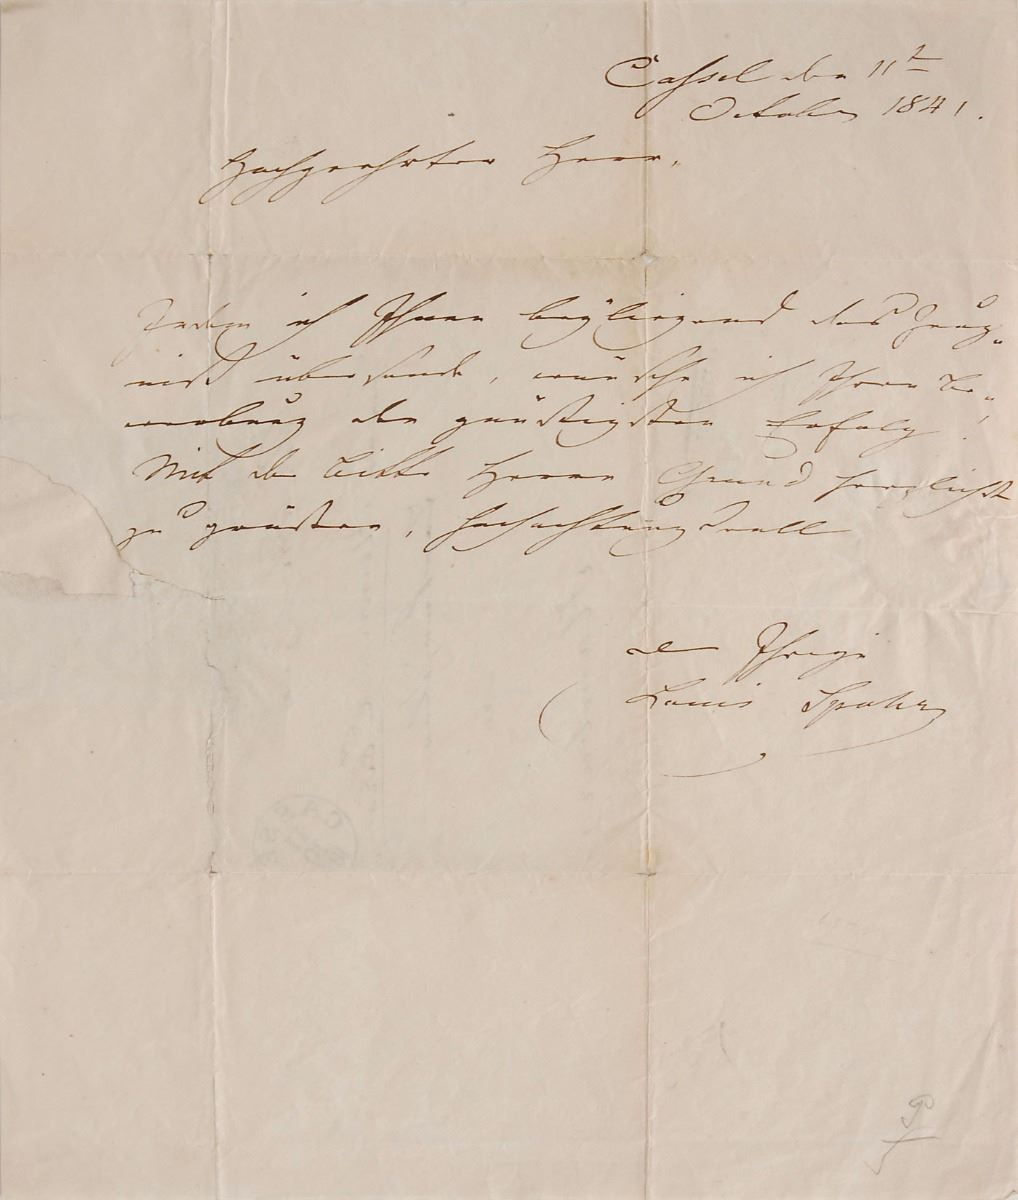 Cassel den 11ten
October 1841.
Hochgeehrter Herr,
Indem ich Ihnen beyliegend das Zeug-
niß übersende, wünsche ich Ihrer Be-
werbung den günstigsten Erfolg!
Mit der Bitte Herrn Grund herzlichst
zu grüßen, hochachtungsvoll
der Ihrige
Louis Spohr